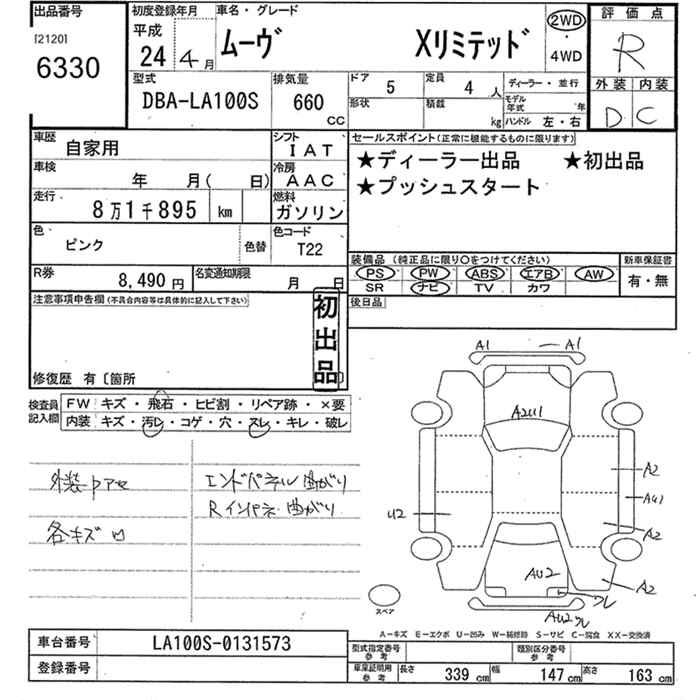 出品番号
[2120]
6330
初度登録年月
平成
24 年 4月
車名・グレード
ムーヴ Xリミテッド
2WD
・
4WD
評価点
R
外装 内装
D C
型式
DBA-LA100S
排気量
660 CC
ドア 5
定員 4 人
形状
積載 kg
ディーラー・並行
モデル年式 年
ハンドル 左・右
車歴 自家用
シフト IAT
車検 年 月( 日)
冷房 AAC
走行 8万1千895 km
燃料 ガソリン
色 ピンク 色替
色コード T22
セールスポイント(正常に機能するものに限ります)
★ディーラー出品 ★初出品
★プッシュスタート
装備品(純正品に限り○をつけてください)
PS PW ABS エアB AW
SR ナビ TV カワ
新車保証書
有・無
R券 8,490 円
名変通知期限 月 日
後日品
注意事項申告欄(不具合内容等は具体的に記入して下さい)
初出品
修復歴 有〔箇所
検査員記入欄
FW キズ・飛石・ヒビ割・リペア跡・×要
内装 キズ・汚レ・コゲ・穴・スレ・キレ・破レ
外装ウスアセ
各キズ凹
エンドパネル曲がり
Rインパネ曲がり
A1 A1
A2U1
A2
AU1
U2
A2
AU2
ワレ
A2
AU2ワレ
スペア
A-キズ E-エクボ U-凹み W-補修跡 S-サビ C-腐食 XX-交換済
車台番号 LA100S-0131573
登録番号
型式指定番号 参考
類別区分番号 参考
車庫証明用 参考
長さ 339 cm 幅 147 cm 高さ 163 cm